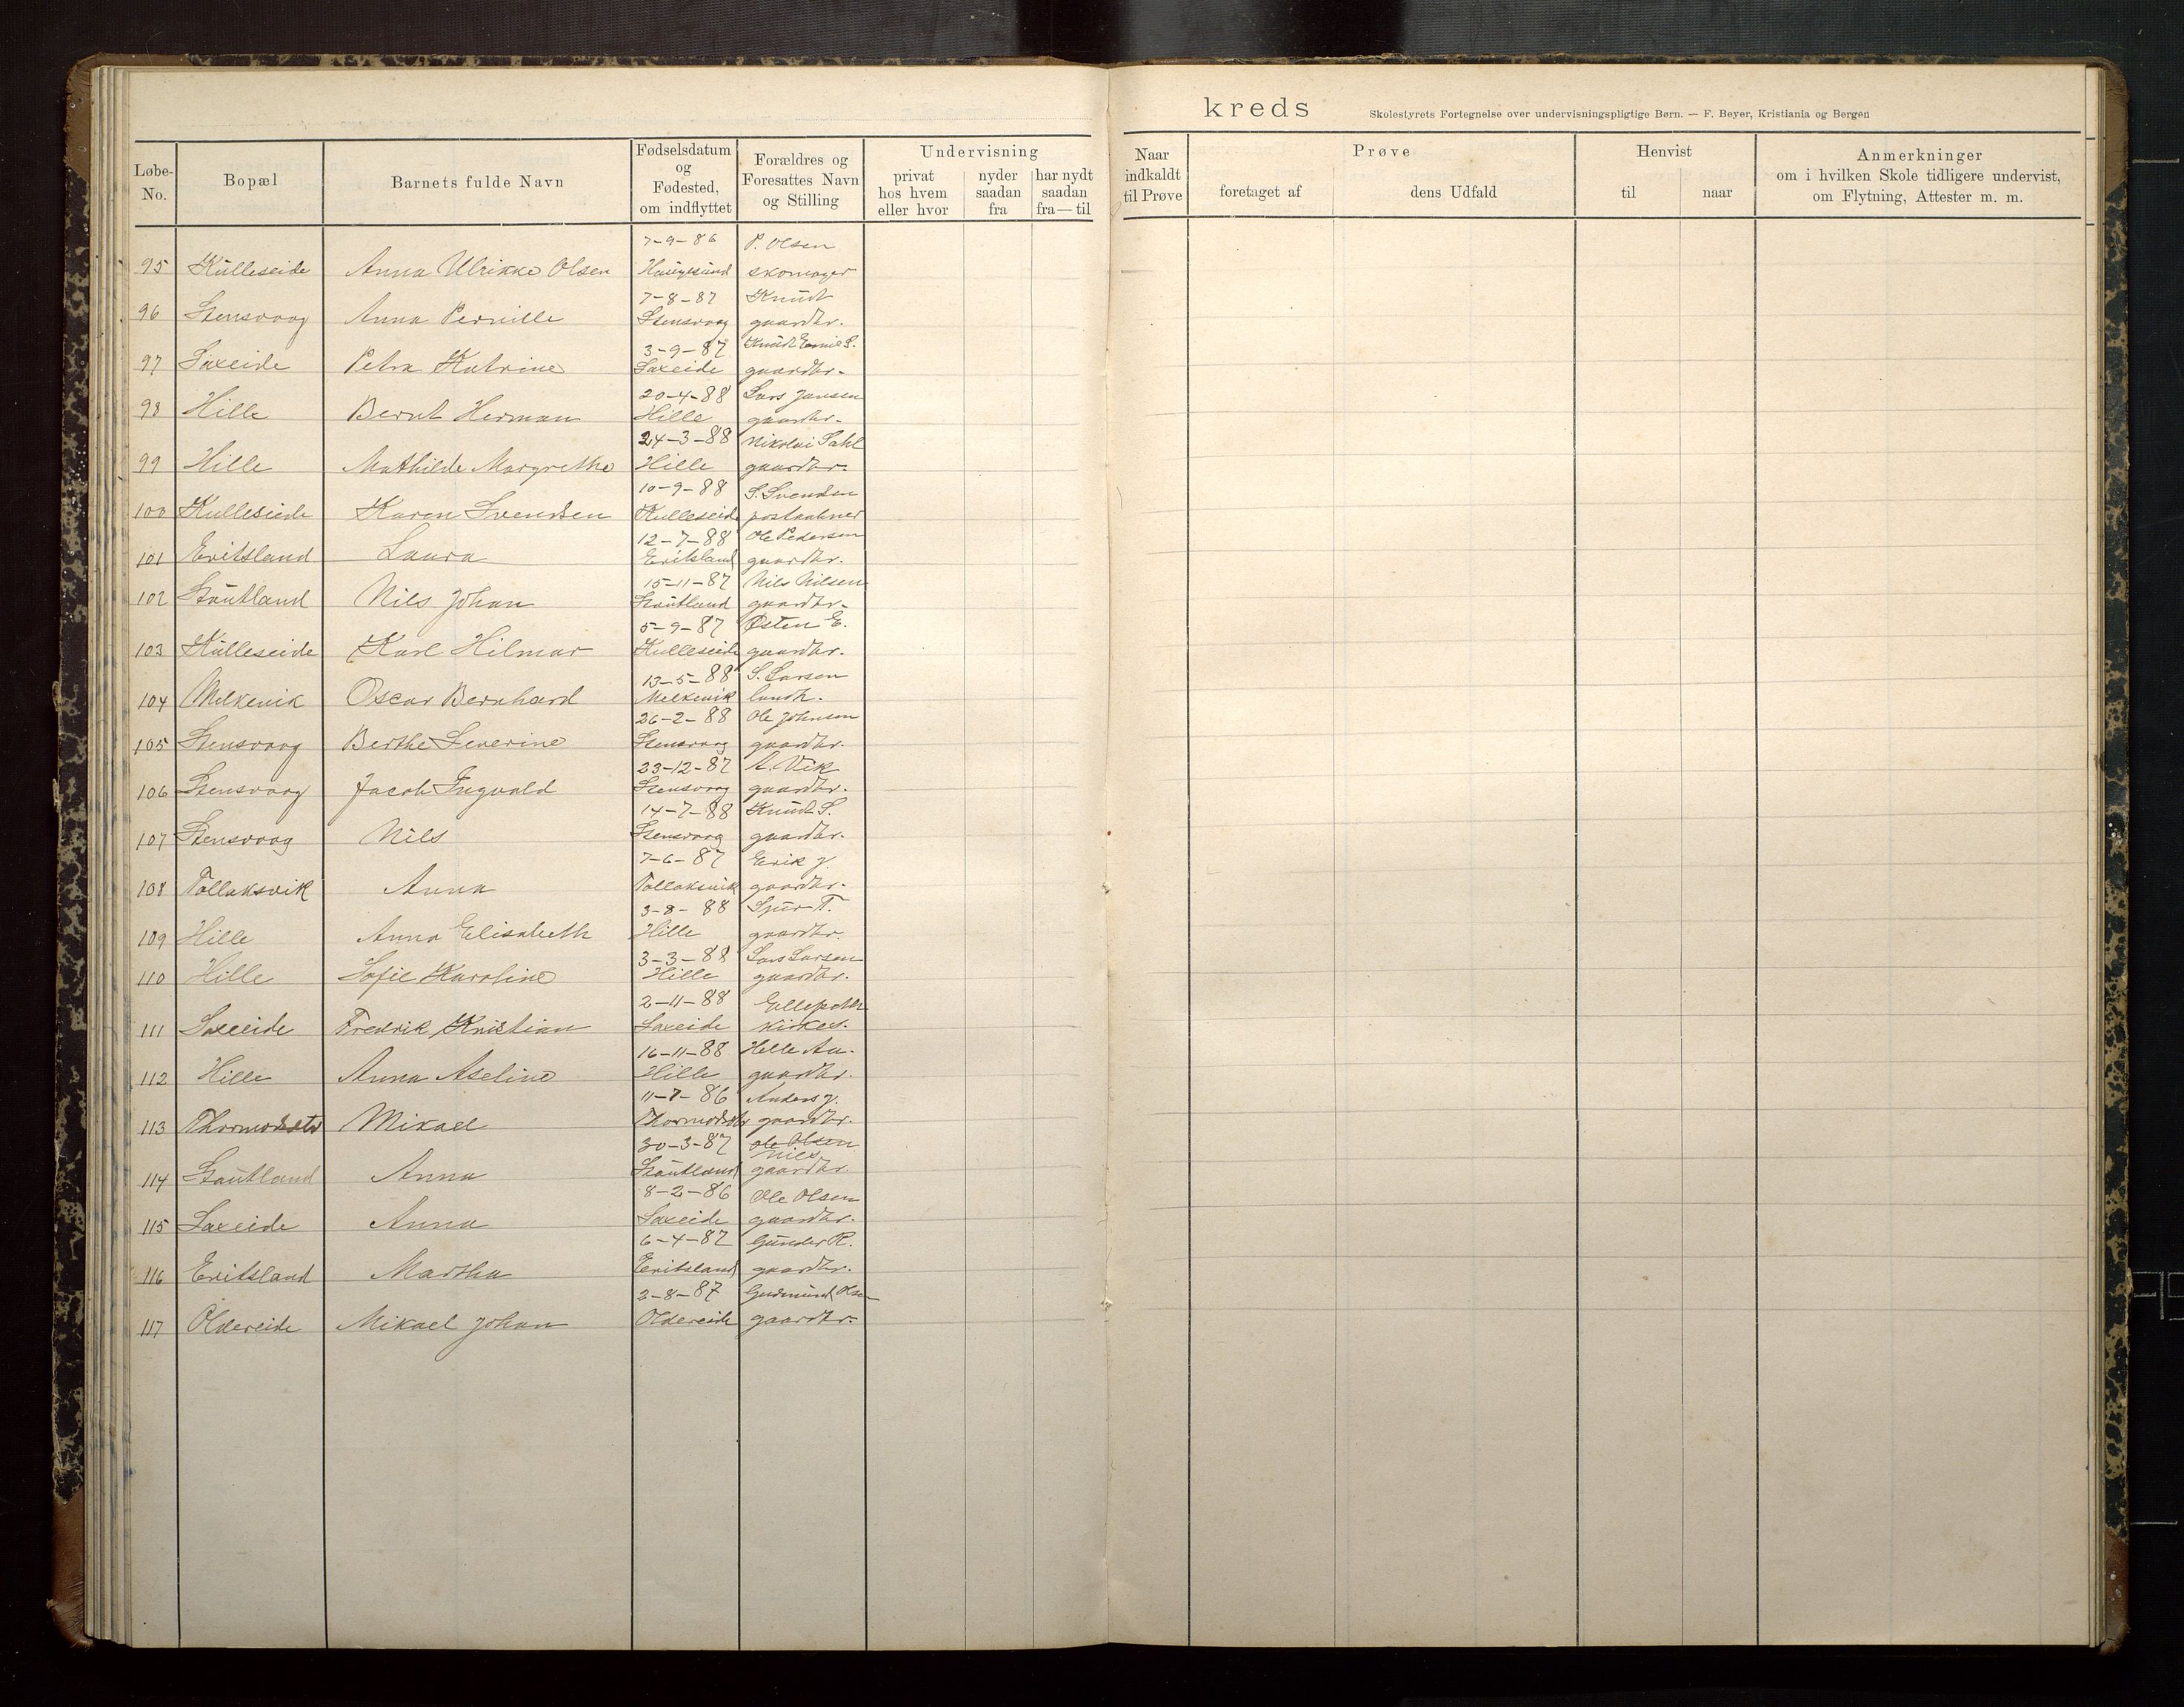 kreds
Skolestyrets Fortegnelse over undervisningspligtige Børn. — F. Beyer, Kristiania og Bergen
Løbe-No.
Bopæl
Barnets fulde Navn
Fødselsdatum og Fødested, om indflyttet
Forældres og Foresattes Navn og Stilling
Undervisning
privat hos hvem eller hvor
nyder saadan fra
har nydt saadan fra — til
Naar indkaldt til Prøve
Prøve
foretaget af
dens Udfald
Henvist
til
naar
Anmerkninger
om i hvilken Skole tidligere undervist,
om Flytning, Attester m. m.
7-9-86 P. Olsen
95 Kulleseide Anna Ulrikke Olsen Haugesund skomager
7-8-87 Knud
96 Stensvaag Anna Pernille Stensvaag gaardbr.
3-9-87 Knud S.
97 Saxeide Petra Katrine Saxeide gaardbr.
20-4-88 Lars Jansen
98 Hille Bernt Herman Hille gaardbr.
24-3-88 Nikolai Sahl
99 Hille Mathilde Margrethe Hille gaardbr.
10-9-88 S. Svendsen
100 Kulleseide Karen Svendsen Kulleseide postaabner
12-7-88 Ole Pedersen
101 Eritsland Laura Eritsland gaardbr.
15-11-87 Nils Nilsen
102 Stautland Nils Johan Stautland gaardbr.
5-9-87 Østen E.
103 Kulleseide Karl Hilmar Kulleseide gaardbr.
13-5-88 S. Larsen
104 Melkevik Oscar Bernhard Melkevik landh.
26-2-88 Ole Johnsen
105 Stensvaag Berthe Severine Stensvaag gaardbr.
23-12-87 A. Vik
106 Stensvaag Jacob Ingvald Stensvaag gaardbr.
14-7-88 Knud S.
107 Stensvaag Nils Stensvaag gaardbr.
7-6-87 Erik J.
108 Tollaksvik Anna Tollaksvik gaardbr.
3-8-88 T.
109 Hille Anna Elisabeth Hille gaardbr.
3-3-88 Lars Larsen
110 Hille Sofie Karoline Hille gaardbr.
2-11-88
111 Saxeide Fredrik Kristian Saxeide kirkes.
16-11-88 Helle
112 Hille Anna Aseline Hille gaardbr.
11-7-86 Anders J.
113 Mikael gaardbr.
30-3-87 Ole Olsen
Nils
114 Stautland Anna Stautland gaardbr.
8-2-86 Ole Olsen
115 Saxeide Anna Saxeide gaardbr.
6-4-87 Gunder R.
116 Eritsland Martha Eritsland gaardbr.
2-8-87 Gudmund Olsen
117 Oldereide Mikael Johan Oldereide gaardbr.